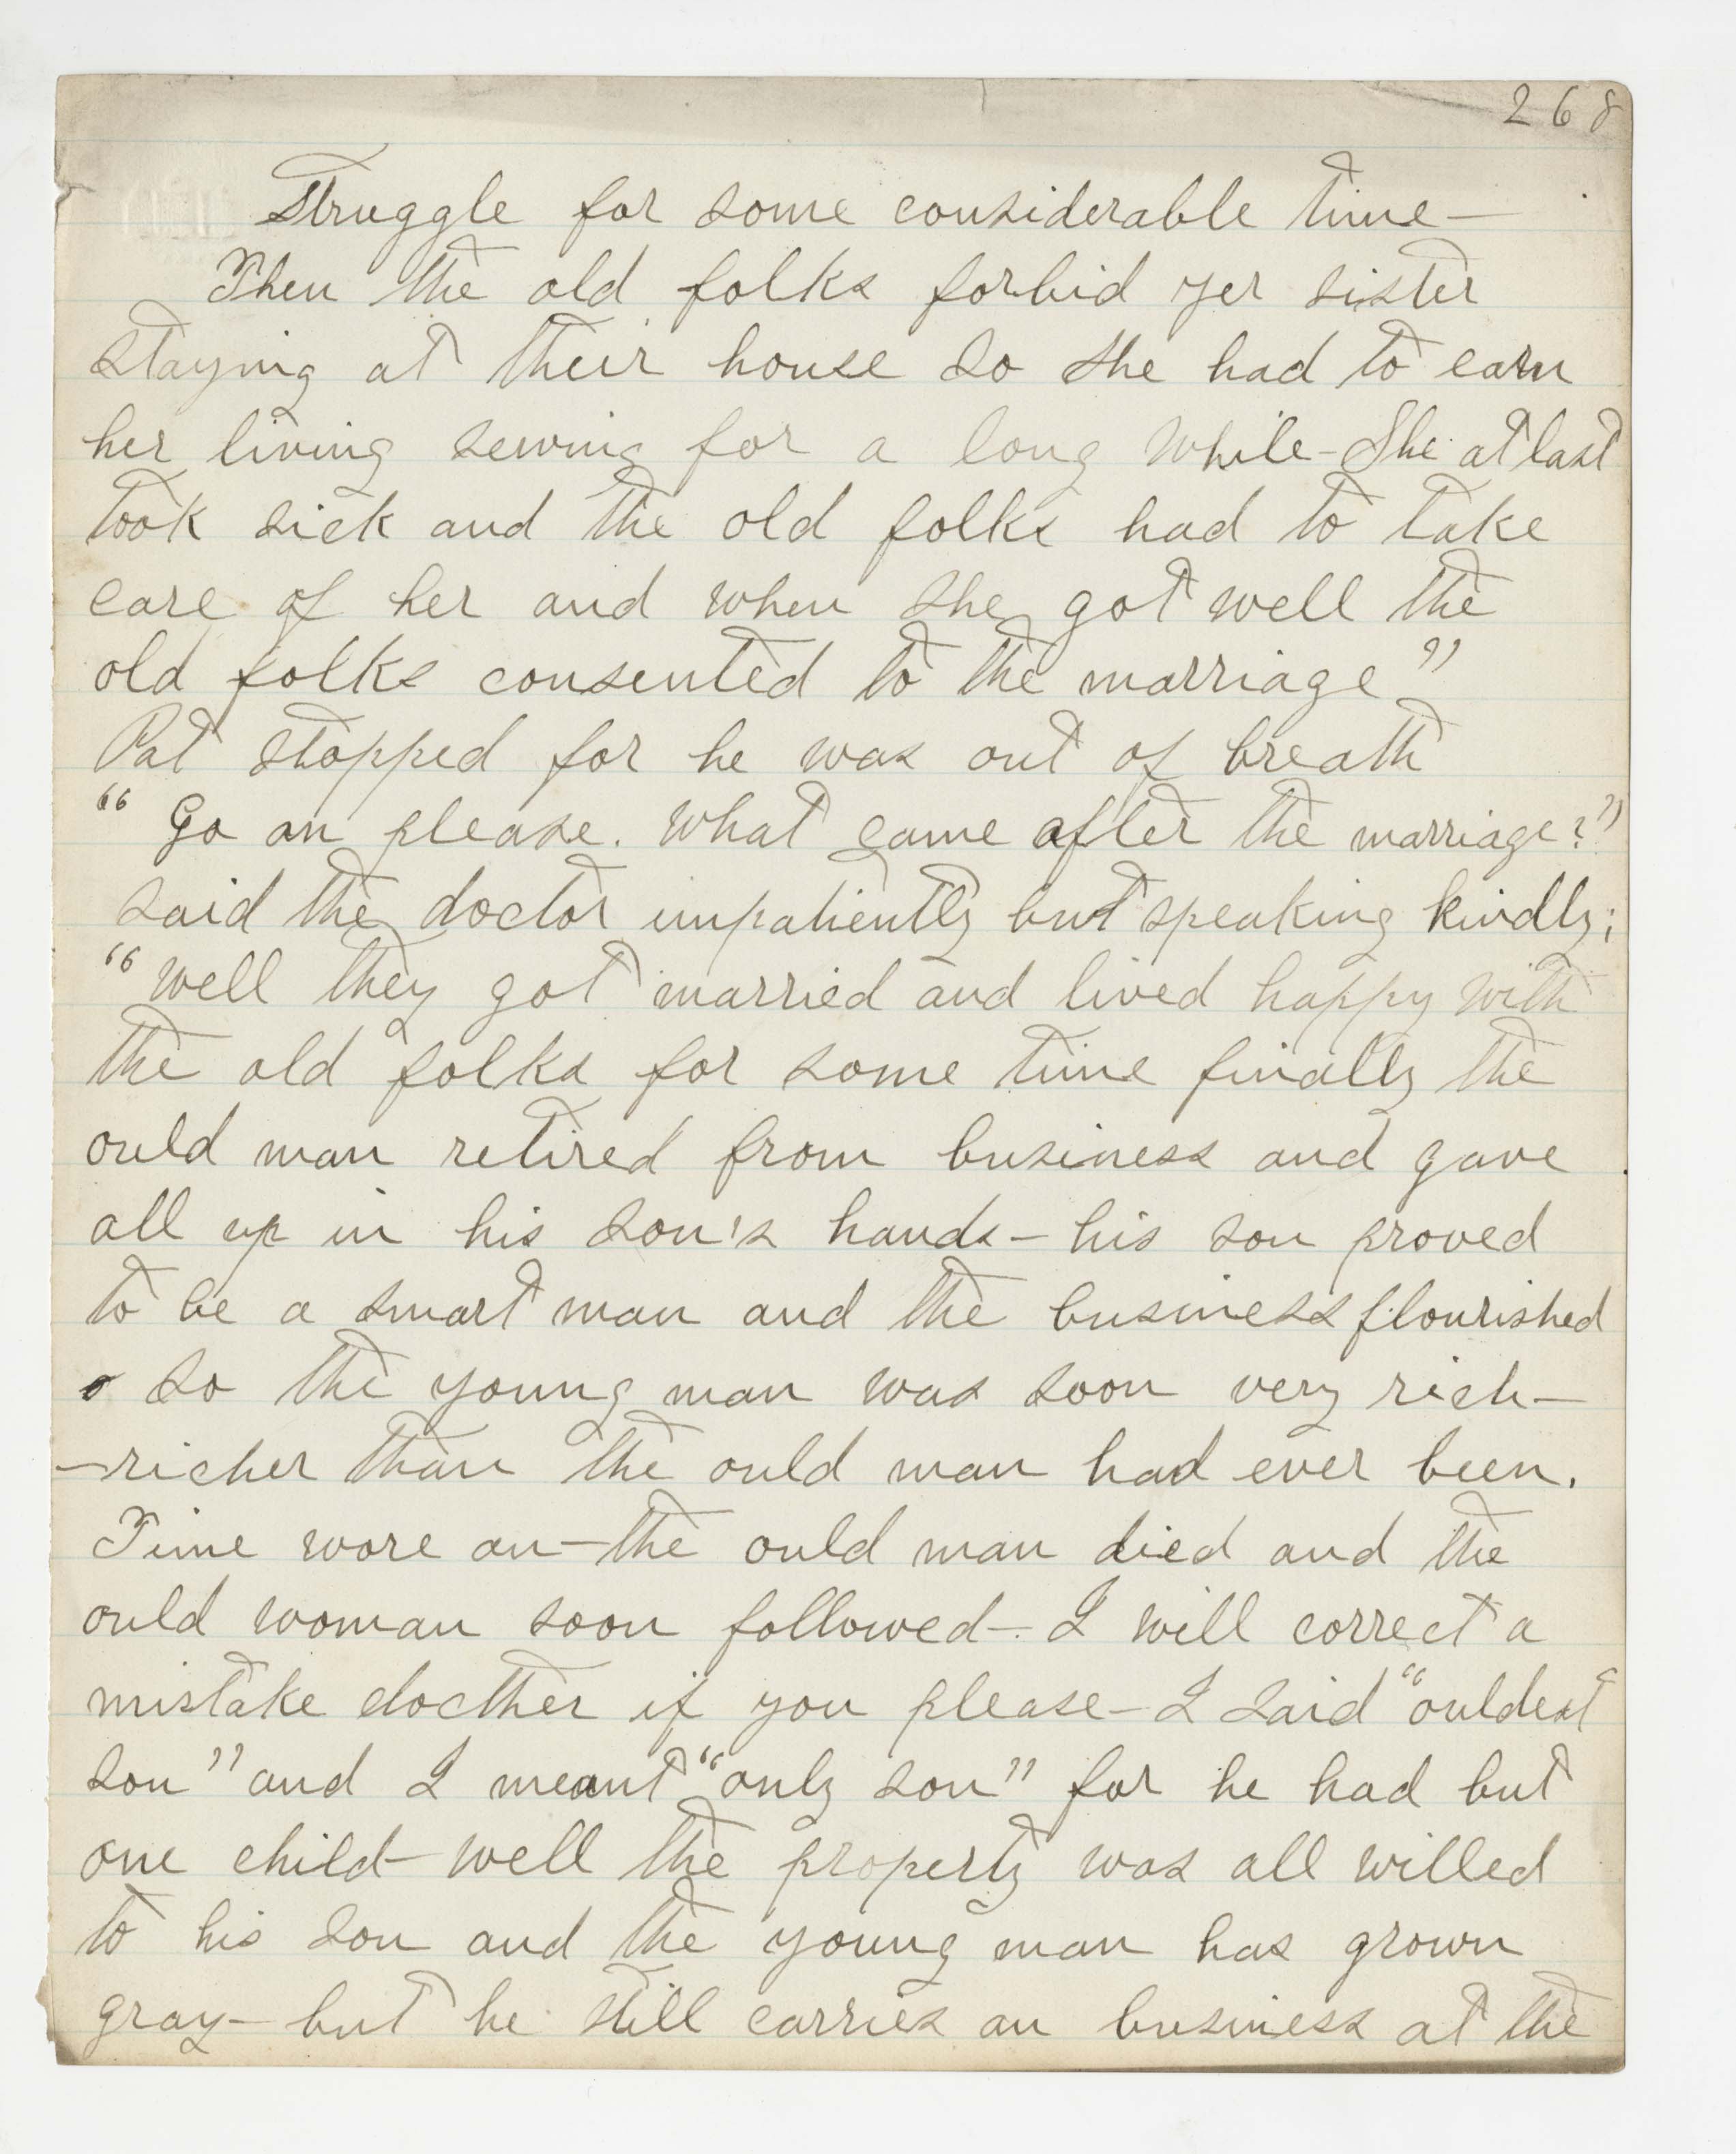 268
Struggle for some considerable time—
Then the old folks forbid yer sister
staying at their house so she had to earn
her living sewing for a long while - She at last
took sick and the old folks had to take
care of her and when she got well the
old folks consented to the marriage"
Pat stopped for he was out of breath
"Go on please. What came after the marriage?"
said the doctor impatiently but speaking kindly;
"well they got married and lived happy with
the old folks for some time finally the
ould man retired from business and gave
all up in his son's hands - his son proved
to be a smart man and the business flourished
so the young man was soon very rich—
—richer than the ould man had ever been.
Time wore on—the ould man died and the
ould woman soon followed—. I will correct a
mistake docther if you please—I said "ouldest
son" and I meant "only son" for he had but
one child—well the property was all willed
to his son and the young man has grown
gray—but he still carries on business at the